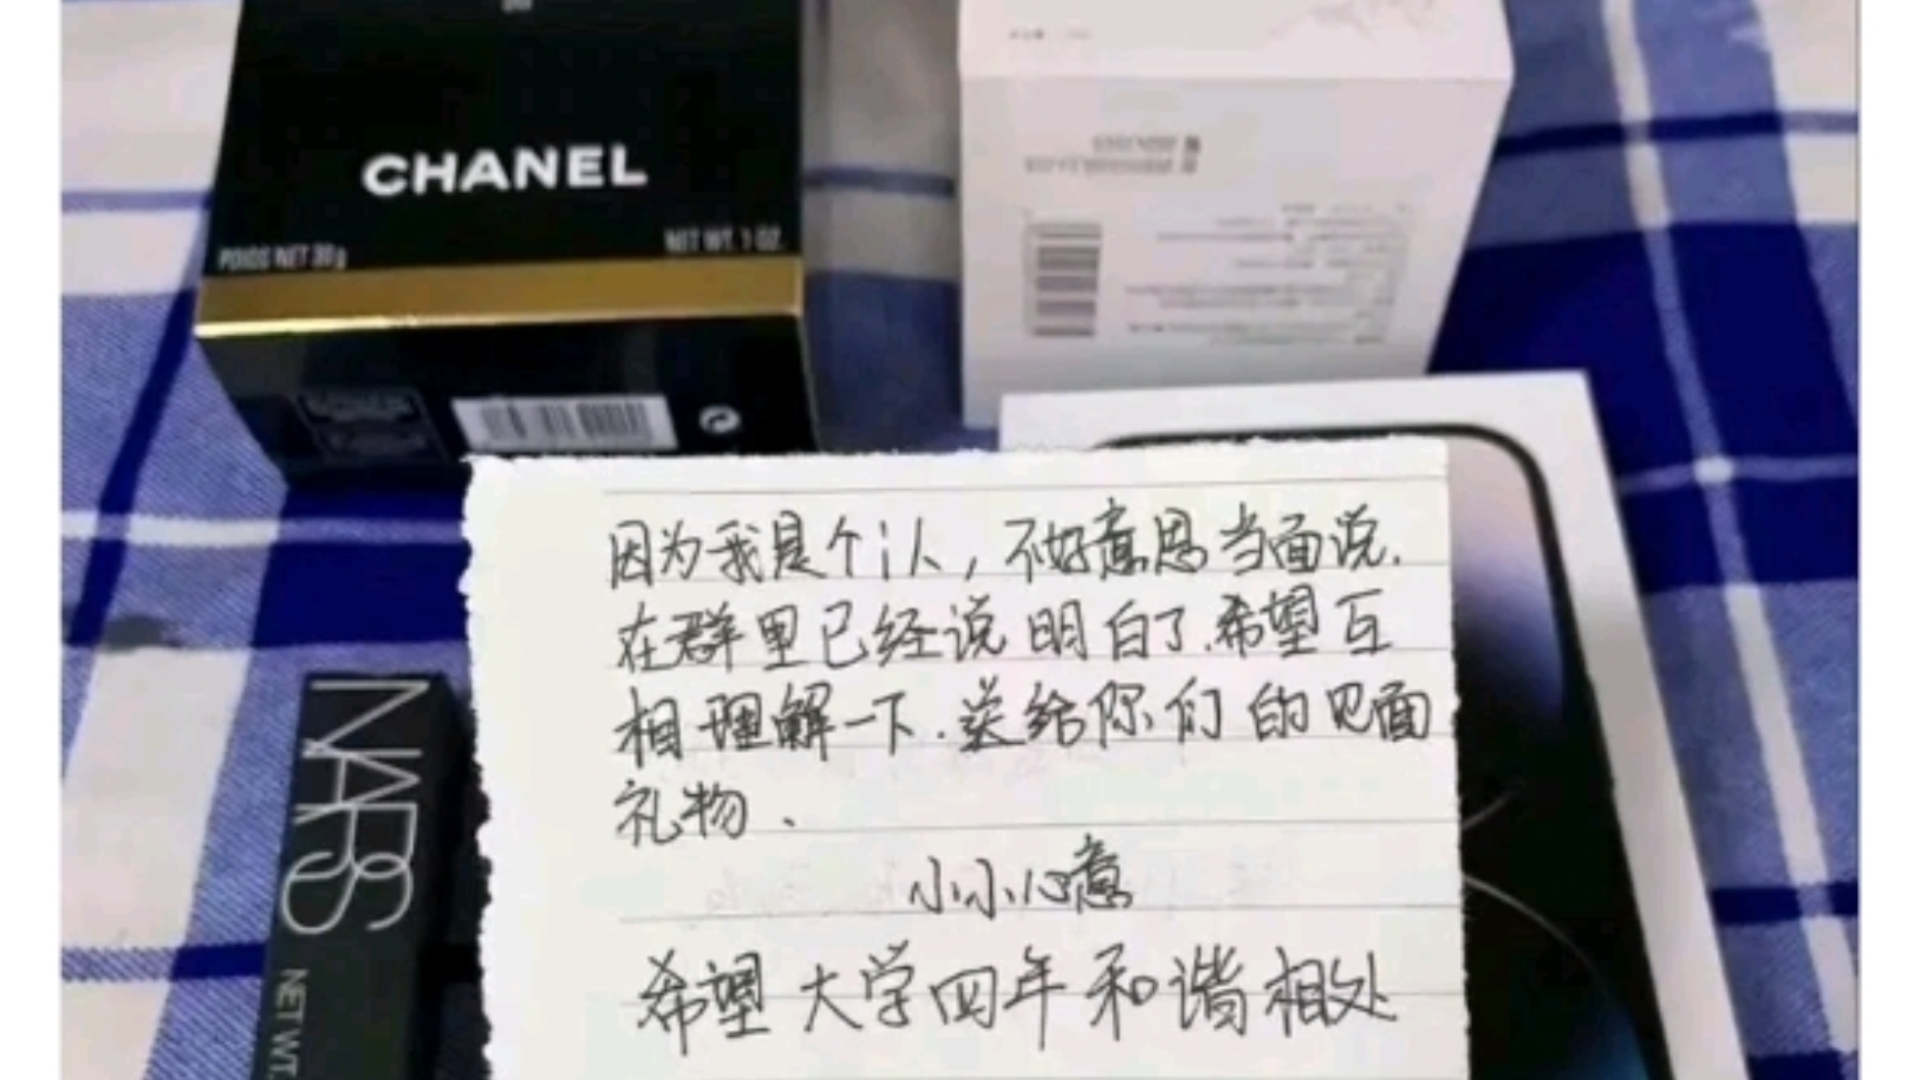 CHANEL
POIDS NET 30g
NET WT. 1 OZ.
因为我是个i人，不好意思当面说.
在群里已经说明白了.希望互
相理解一下.送给你们的见面
礼物、
小小心意
希望大学四年和谐相处
NARS
NET WT.